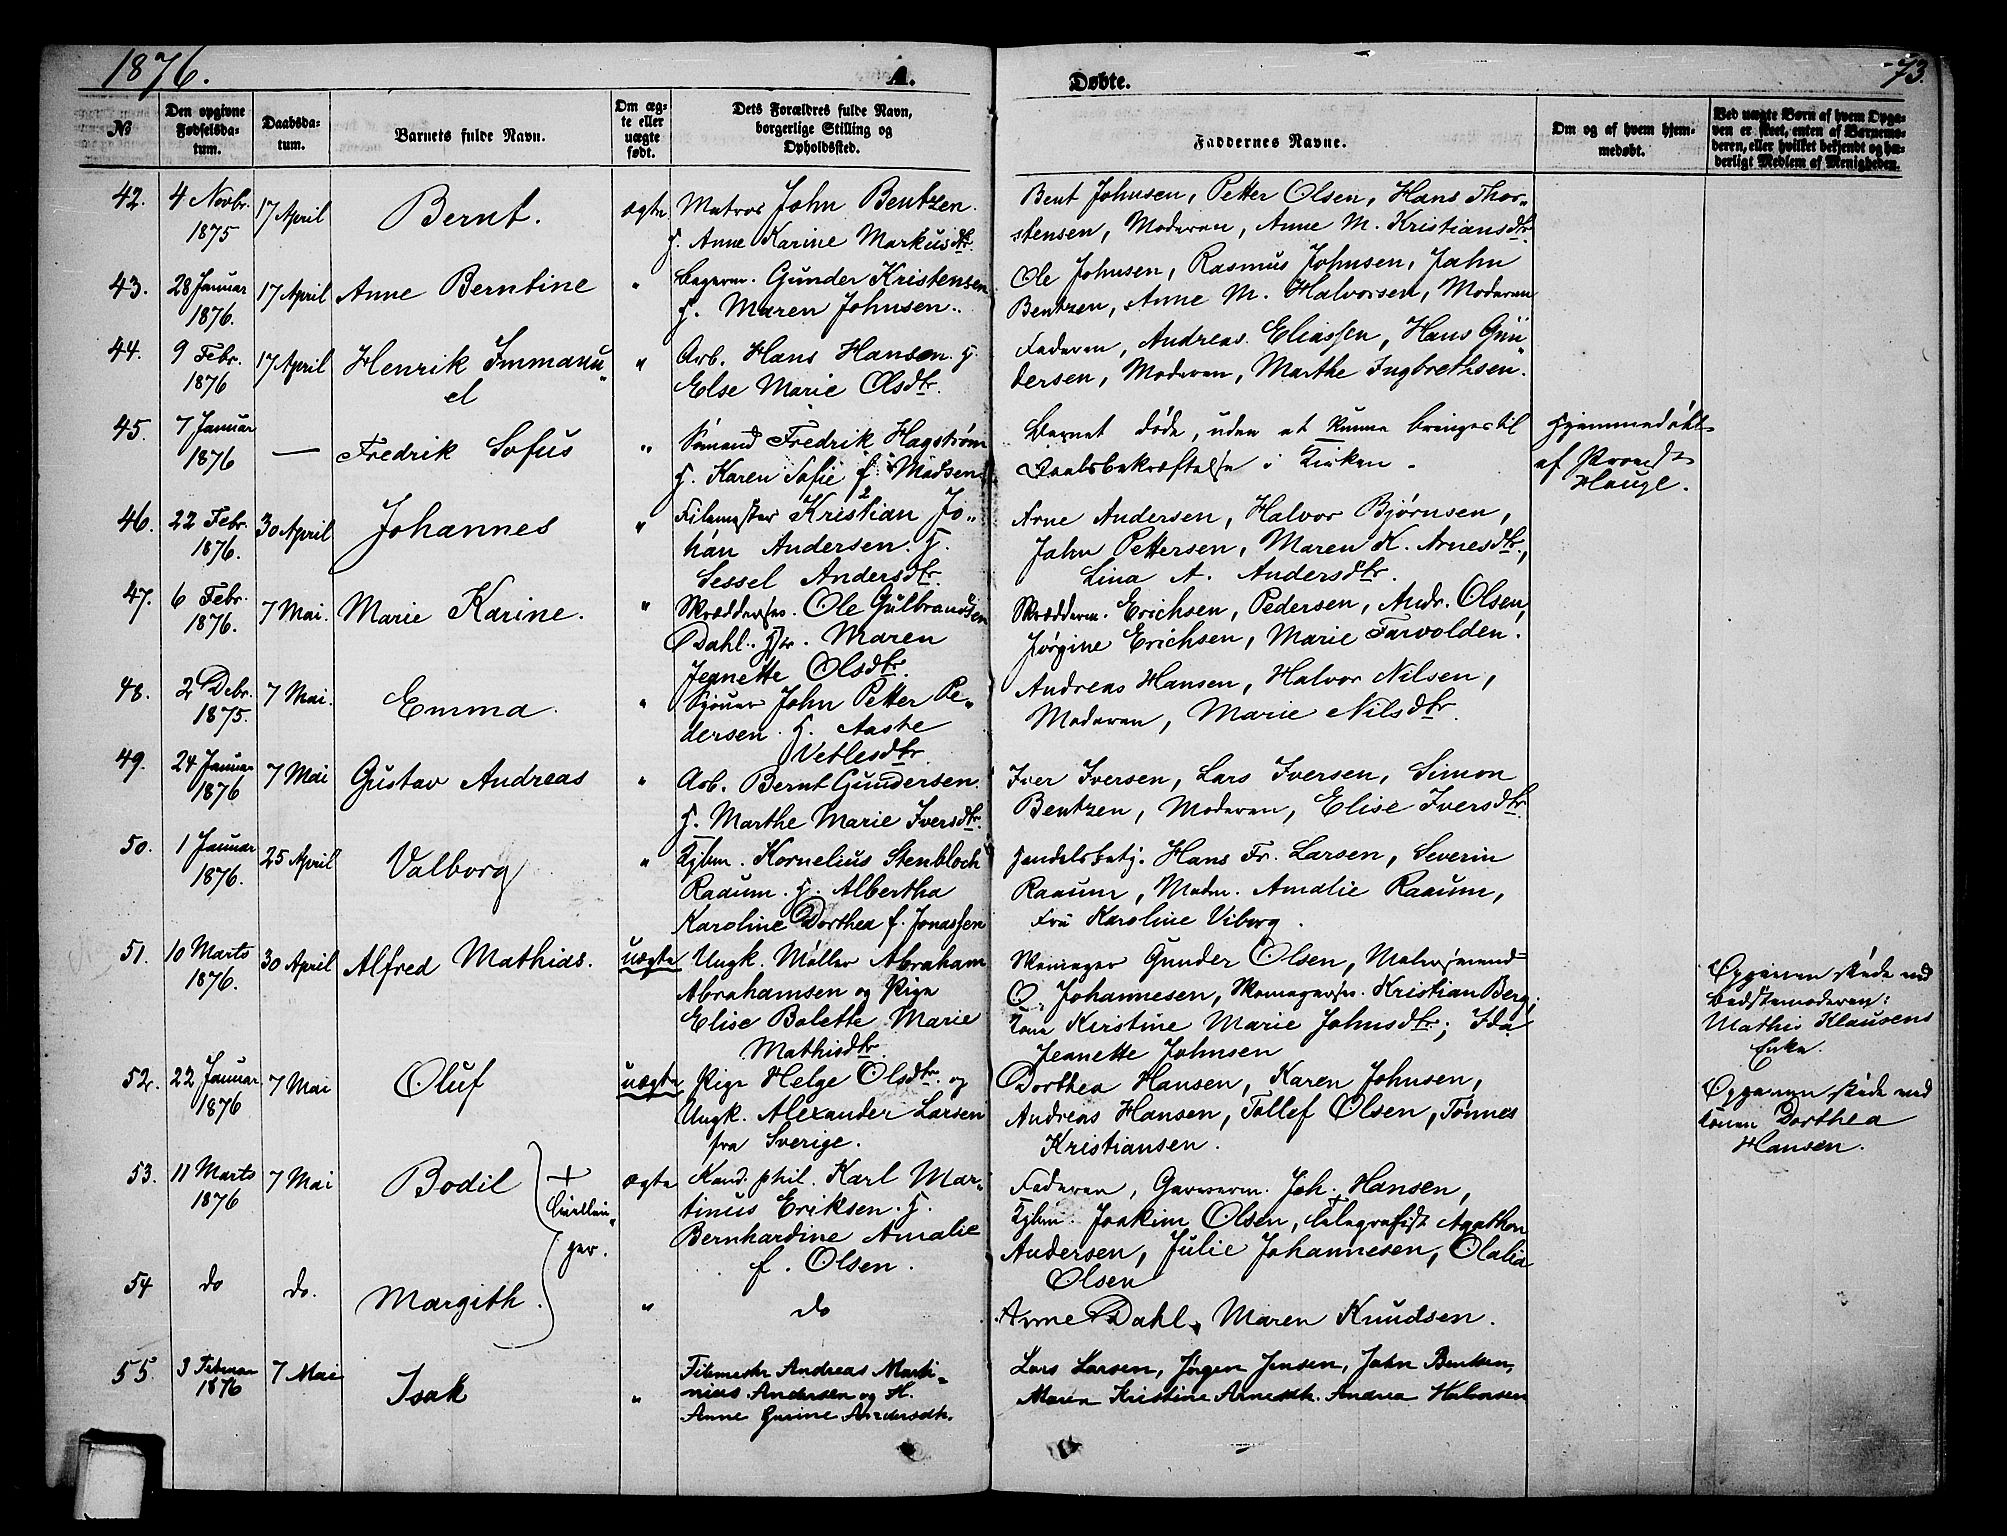 1876.
A.
Døbte.
73.
No
Den opgivne Fødselsdatum.
Daabsdatum.
Barnets fulde Navn.
Om ægte eller uægte født.
Dets Forældres fulde Navn, borgerlige Stilling og Opholdssted.
Faddernes Navne.
Om og af hvem hjemmedøbt.
Ved uægte Børn af hvem Opgaven er skeet, enten af Barnemoderen, eller hvilket bekjendt og hæderligt Medlem af Menigheden.
42. 4 Novbr. 1875 17 April Bernt. ægte
Matros John Bentzen.
H. Anne Karine Markusdtr.
Bent Johnsen, Petter Olsen, Hans Thor-
stensen, Moderen, Anne M. Kristiansdtr.
43. 28 Januar 1876. 17 April Anne Berntine "
Bagerm. Gunder Kristensen
H. Maren Johnsen.
Ole Johnsen, Rasmus Johnsen, Jahn
Bentzen, Anne M. Halvorsen, Moderen
44. 9 Febr. 1876 17 April Henrik Immanuel "
Arb. Hans Hansen. H.
Else Marie Olsdtr.
Faderen, Andreas Eliassen, Hans Gun
dersen, Moderen, Marthe Ingbrethsen.
45. 7 Januar 1876 — Fredrik Sofus "
Sømand Fredrik Hagstrøm
H. Karen Sofie f. Madsen
Barnet døde, uden at kunne bringes til
Daabsbekræftelse i Kirken.
Hjemmedøbt
af Provst
Hauge.
46. 22 Febr. 1876. 30 April Johannes "
Filemester Kristian Jo-
han Andersen. H.
Sessel Andersdtr.
Arne Andersen, Halvor Bjørnsen,
Jahn Pettersen, Maren K. Arnesdtr.,
Lina A. Andersdtr.
47. 6 Febr. 1876. 7 Mai. Marie Karine. "
Skræddersv. Ole Gulbrandsen
Dahl. Hstr. Maren
Jeanette Olsdtr.
Skrædderm. Erichsen, Pedersen, Andr. Olsen,
Jørgine Erichsen, Marie Farvolden.
48. 2 Debr. 1875. 7 Mai. Emma. "
Sjouer John Petter Pe-
dersen. H. Aaste
Vetlesdtr.
Andreas Hansen, Halvor Nilsen,
Moderen, Marie Nilsdtr.
49. 24 Januar 1876 7 Mai Gustav Andreas "
Arb. Bernt Gundersen.
H. Marthe Marie Iversdtr.
Iver Iversen, Lars Iversen, Simon
Bentzen, Moderen, Elise Iversdtr.
50. 1 Januar 1876. 25 April Valborg "
Kjbm. Kornelius Stenbloch
Raaum. H. Albertha
Karoline Dorthea f. Jonassen
Handelsbetj. Hans Fr. Larsen, Severin
Raaum, Madm. Amalie Raaum,
Fru Karoline Viborg.
51. 10 Marts 1876. 30 April Alfred Mathias. uægte
Ungk. Møller Abraham
Abrahamsen og Pige
Elise Bolette Marie
Mathisdtr.
Skomager Gunder Olsen,
O. Johannesen, Skomagersv. Kristian Berg,
Kone Kirstine Marie Johnsdtr; Ida
Jeanette Johnsen
Opgaven skede ved
Bedstemoderen:
Mathis Klausens
Enke.
52. 22 Januar 1876 7 Mai Oluf uægte
Pige Helge Olsdtr. og
Ungk. Alexander Larsen
fra Sverige.
Dorthea Hansen, Karen Johnsen,
Andreas Hansen, Tollef Olsen, Tønnes
Kristiansen.
Opgaven skede ved
Konen Dorthea
Hansen.
53. 11 Marts 1876 7 Mai Bodil + Tvillinger. ægte
Kand. phil. Karl Mar-
tinus Eriksen. H.
Bernhardine Amalie
f. Olsen.
Faderen, Garverm. Joh. Hansen,
Kjbm. Joakim Olsen, Telegrafist Agathon
Andersen, Julie Johannesen, Olalia
Olsen
54 do do. Margith. "
do
Anne Dahl, Maren Knudsen.
55. 3 Februar 1876 7 Mai Isak "
Filemestr Andreas Marti-
nius Andersen og H.
Anne Gurine Andersdtr.
Lars Larsen, Jørgen Jensen, John Bentsen,
Maren Kristine Arnesdtr. Andrea Halvorsen